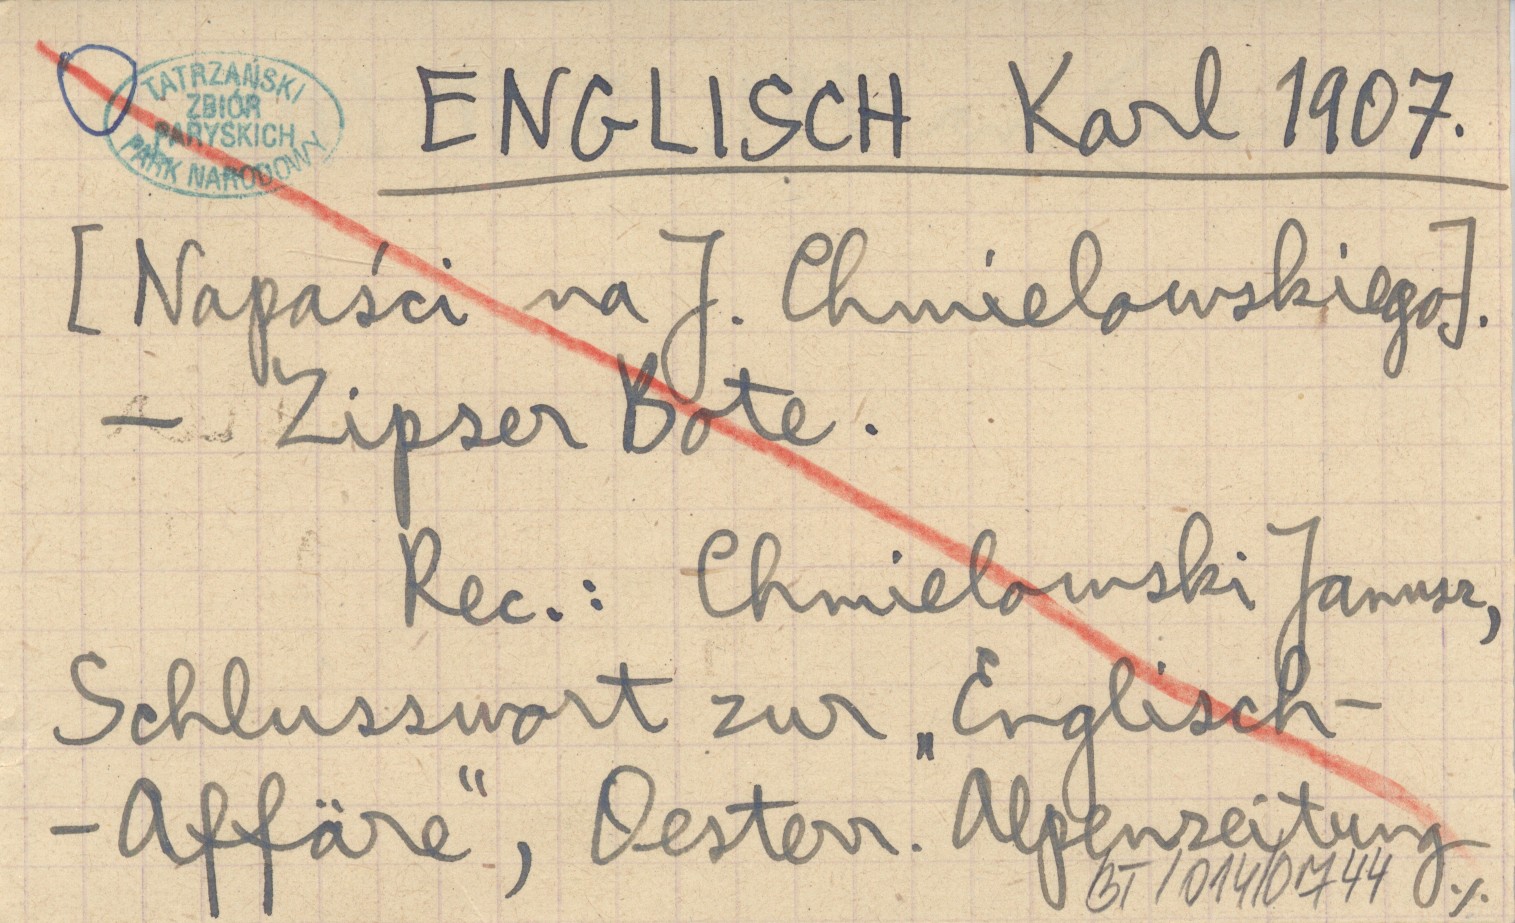 TATRZAŃSKI
ZBIÓR
PARYSKICH
PARK NARODOWY
ENGLISCH Karl 1907.
[Napaści na J. Chmielowskiego].
– Zipser Bote.
Rec.: Chmielowski Janusz,
Schlusswort zur „Englisch-
-Affäre“, Oesterr. Alpenzeitung
BT/014/01744 ./.